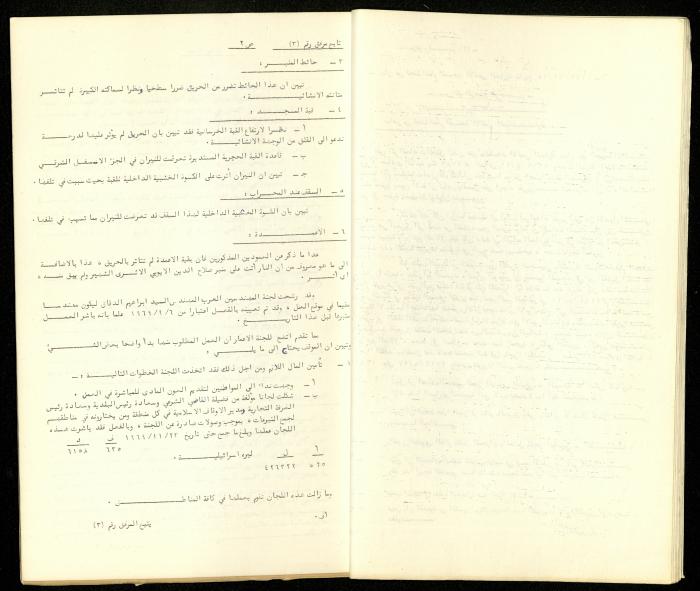 تابع مرفق رقم (٣) ص ٢
٣ - حائط المنبر :
تبين ان هذا الحائط تضرر من الحريق ضررا سطحيا ونظرا لسماكته الكبيرة لم تتاثر
متانته الانشائية .
٤ - قبة المسجد :
أ - نظرا لارتفاع القبة الخرسانية فقد تبين بان الحريق لم يؤثر عليها لدرجة
تدعو الى القلق من الوجهة الانشائية .
ب - قاعدة القبة الحجرية المستديرة تعرضت للنيران في الجزء الاسفل الشرقي
ج - تبين ان النيران أثرت على الكسوة الخشبية الداخلية للقبة بحيث تسببت في تلفها .
٥ - السقف عند المحراب :
تبين بان الكسوة الخشبية الداخلية لهذا السقف قد تعرضت للنيران مما تسبب في تلفها .
٦ - الاعمدة :
عدا ما ذكر من العمودين المذكورين فان بقية الاعمدة لم تتاثر بالحريق ، هذا بالاضافة
الى ما هو معروف من ان النار أتت على منبر صلاح الدين الايوبي الاثري الشهير ولم يبق منه
اى أثر .
وقد رشحت لجنة المهندسين العرب المهندس السيد ابراهيم الدقاق ليكون مهندسا
مقيما في موقع العمل ، وقد تم تعيينه بالفعل اعتبارا من ١٩٦٩/٩/٦ علما بانه باشر العمل
متبرعا قبل هذا التاريخ .
مما تقدم اتضح للجنة الاعمار ان العمل المطلوب منها بدأ واضحا بعض الشيء
وتبين ان الموقف يحتاج الى ما يلي :
١ - تأمين المال اللازم ومن اجل ذلك فقد اتخذت اللجنة الخطوات التالية :-
أ - وجهت نداء الى المواطنين لتقديم العون المادى للمباشرة في العمل .
ب - شكلت لجانا مؤلفة من فضيلة القاضي الشرعي وسعادة رئيس البلدية وسعادة رئيس
الغرفة التجارية ومدير الاوقاف الاسلامية في كل منطقة ومن يختارونه في مناطقهم
لجمع التبرعات ، بموجب وصولات صادرة عن اللجنة ، وبالفعل فقد باشرت هذه
اللجان عملها وبلغ ما جمع حتى تاريخ ١٩٦٩/١١/٢٢ ف د
٦٣٥ ٦١٥٨
أ ل ليره اسرائيلية .
٢٥ ٤٢٦٣٢٢
وما زالت هذه اللجان تقوم بعملها في كافة المناطق .
يتبع المرفق رقم (٣)